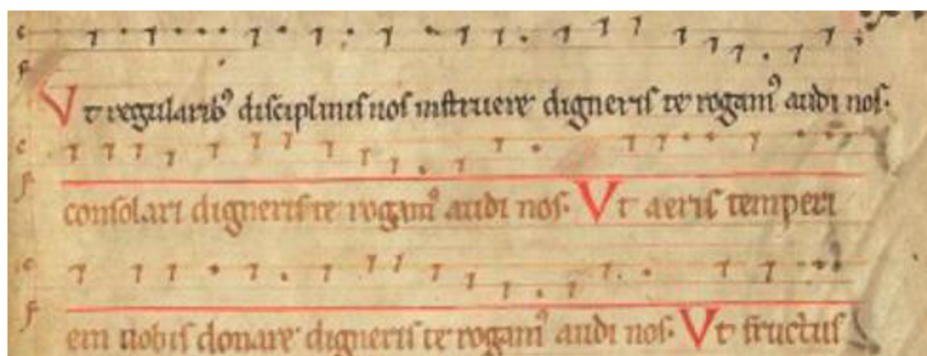 Ut regularib⁹ disciplinis nos instruere digneris te rogam⁹ audi nos.
consolari digneris te rogam⁹ audi nos. Ut aeris temperi
em nobis donare digneris te rogam⁹ audi nos. Ut fructus